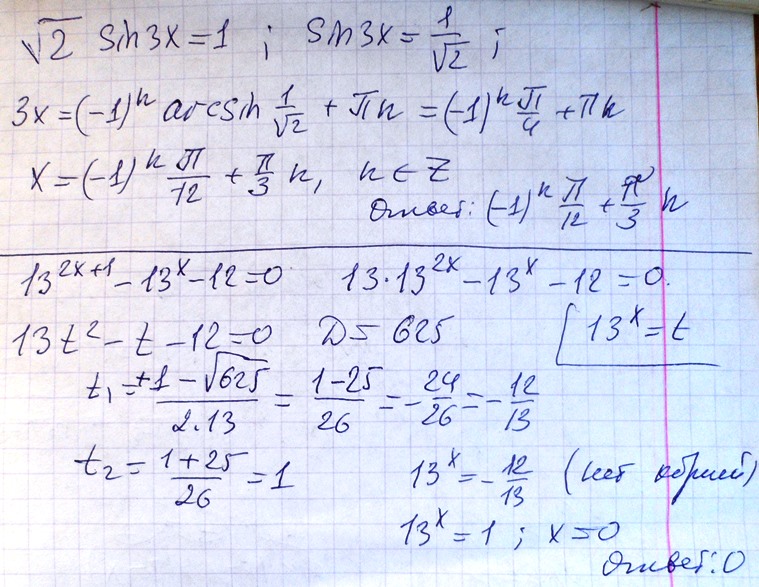 √2 sin3x = 1 ; sin3x = 1/√2 ;
3x = (-1)^n arcsin 1/√2 + πn = (-1)^n π/4 + πn
x = (-1)^n π/12 + π/3 n, n ∈ Z
Ответ: (-1)^n π/12 + π/3 n
13^(2x+1) - 13^x - 12 = 0 13·13^(2x) - 13^x - 12 = 0.
13t² - t - 12 = 0 D = 625 [13^x = t
t₁ = (+1 - √625)/(2·13) = (1-25)/26 = -24/26 = -12/13
t₂ = (1+25)/26 = 1 13^x = -12/13 (нет корней)
13^x = 1 ; x = 0
Ответ: 0